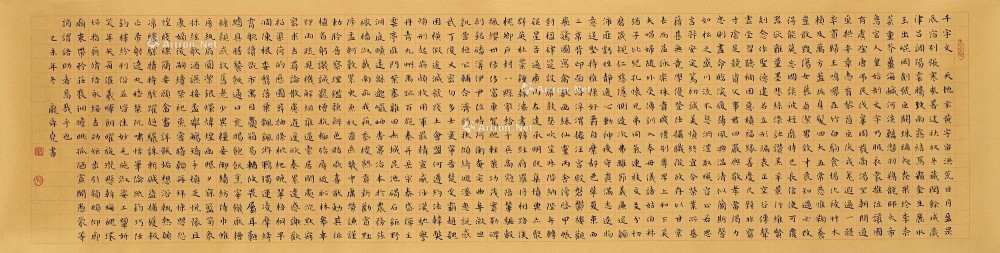 千字文 天地玄黃宇宙洪荒日月盈昃
辰宿列張寒來暑往秋收冬藏閏餘成歲
律呂調陽雲騰致雨露結為霜金生麗水
玉出崐岡劍號巨闕珠稱夜光果珍李柰
菜重芥薑海鹹河淡鱗潛羽翔龍師火帝
鳥官人皇始制文字乃服衣裳推位讓國
有虞陶唐弔民伐罪周發殷湯坐朝問道
垂拱平章愛育黎首臣伏戎羌遐邇一體
率賓歸王鳴鳳在竹白駒食場化被草木
賴及萬方蓋此身髮四大五常恭惟鞠養
豈敢毀傷女慕貞潔男效才良知過必改
得能莫忘罔談彼短靡恃己長信使可覆
器欲難量墨悲絲染詩讚羔羊景行維賢
剋念作聖德建名立形端表正空谷傳聲
虛堂習聽禍因惡積福緣善慶尺璧非寶
寸陰是競資父事君曰嚴與敬孝當竭力
忠則盡命臨深履薄夙興溫凊似蘭斯馨
如松之盛川流不息淵澄取映容止若思
言辭安定篤初誠美慎終宜令榮業所基
籍甚無竟學優登仕攝職從政存以甘棠
去而益詠樂殊貴賤禮別尊卑上和下睦
夫唱婦隨外受傅訓入奉母儀諸姑伯叔
猶子比兒孔懷兄弟同氣連枝交友投分切
磨箴規仁慈隱惻造次弗離節義廉退顛
沛匪虧性靜情逸心動神疲守真志滿逐物
意移堅持雅操好爵自縻都邑華夏東西
二京背邙面洛浮渭據涇宮殿盤鬱樓觀
飛驚圖寫禽獸畫彩仙靈丙舍傍啟甲帳
對楹肆筵設席鼓瑟吹笙陞階納陛弁轉
疑星右通廣內左達承明既集墳典亦聚
群英杜稿鍾隸漆書壁經府羅將相路俠
槐卿戶封八縣家給千兵高冠陪輦驅轂
振纓世祿侈富車駕肥輕策功茂實勒碑
刻銘磻溪伊尹佐時阿衡奄宅曲阜微旦
孰營桓公匡合濟弱扶傾綺迴漢惠說感
武丁俊乂密勿多士寔寧晉楚更霸趙魏
困橫假途滅虢踐土會盟何遵約法韓弊
煩刑起翦頗牧用軍最精宣威沙漠馳譽
丹青九州禹跡百郡秦并嶽宗泰岱禪主
云亭雁門紫塞雞田赤城昆池碣石鉅野
洞庭曠遠綿邈巖岫杳冥治本於農務茲
稼穡俶載南畝我藝黍稷稅熟貢新勸賞
黜陟孟軻敦素史魚秉直庶幾中庸勞謙謹
敕聆音察理鑑貌辨色貽厥嘉猷勉其祗
植省躬譏誡寵增抗極殆辱近恥林皋幸
即兩疏見機解組誰逼索居閒處沉默寂寥
求古尋論散慮逍遙欣奏累遣慼謝歡
招渠荷的歷園莽抽條枇杷晚翠梧桐早
凋陳根委翳落葉飄颻遊鵾獨運凌摩
絳霄耽讀翫市寓目囊箱易輶攸畏屬耳垣
牆具膳餐飯適口充腸飽飫烹宰飢厭糟
糠親戚故舊老少異糧妾御績紡侍巾帷
房紈扇圓潔銀燭煒煌晝眠夕寐藍筍象
床絃歌酒讌接杯舉觴矯手頓足悅豫且
康嫡後嗣續祭祀烝嘗稽顙再拜悚懼恐
惶牋牒簡要顧答審詳骸垢想浴執熱願
涼驢騾犢特駭躍超驤誅斬賊盜捕獲叛
亡布射遼丸嵇琴阮嘯恬筆倫紙鈞巧任
釣釋紛利俗並皆佳妙毛施淑姿工顰妍
笑年矢每催曦暉朗曜璇璣懸斡晦魄環
照指薪修祜永綏吉劭矩步引領俯仰廊
廟束帶矜莊徘徊瞻眺孤陋寡聞愚蒙等誚
謂語助者焉哉乎也
己未年冬 龐舜堯書
Artron.Net
Artron.Net
Artron.Net
Artron.Net